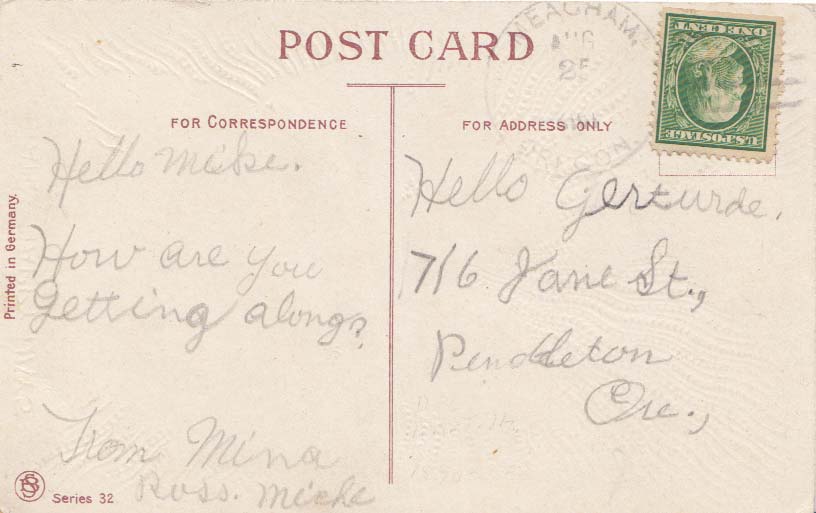 POST CARD
MEACHAM,
AUG
25
OREGON
U.S. POSTAGE
ONE CENT
FOR CORRESPONDENCE
Hello Mike.
How are you
getting along?
From Mina
Ross.
FOR ADDRESS ONLY
Hello Gerturde,
716 Jane St.,
Pendleton
Ore.,
Printed in Germany.
Series 32